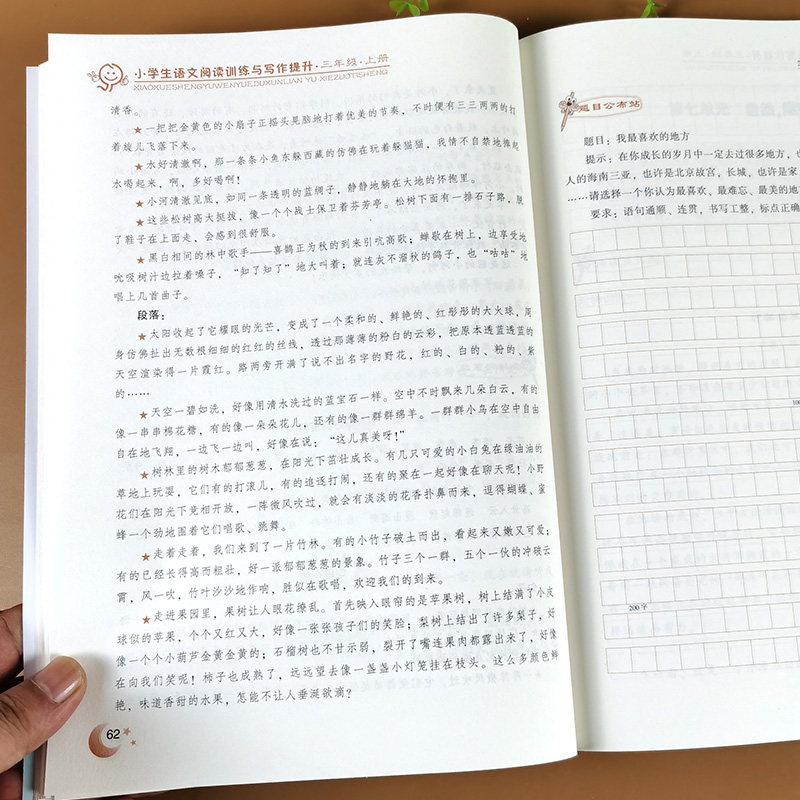 小学生语文阅读训练与写作提升·三年级·上册
XIAOXUESHENGYUWENYUEDUXUNLIAN YU XIEZUOTISHENG
清香。
★一把把金黄色的小扇子正摇头晃脑地打着优美的节奏，不时便有三三两两的打
着旋儿飞落下来。
★水好清澈啊，那一条条小鱼东躲西藏的仿佛在玩着躲猫猫，我情不自禁地捧起
水喝起来，啊，多好喝啊！
★小河清澈见底，如同一条透明的蓝绸子，静静地躺在大地的怀抱里。
★这些松树高大挺拔，像一个个战士保卫着芬芳亭。松树下面有一排石子路，脱
了鞋子在上面走，会感到很舒服。
★黑白相间的林中歌手——喜鹊正为秋的到来引吭高歌；蝉歇在树上，边享受地
吮吸树汁边拉着嗓子，“知了知了”地大叫着；就连灰不溜秋的鸽子，也“咕咕”地
唱上几首曲子。
段落：
★太阳收起了它耀眼的光芒，变成了一个柔和的、鲜艳的、红彤彤的大火球，周
身仿佛扯出无数根细细的红红的丝线，透过那薄薄的粉白的云彩，把原本透蓝透蓝的
天空渲染得一片霞红。路两旁开满了说不出名字的野花，红的、白的、粉的、紫
的……
★天空一碧如洗，好像用清水洗过的蓝宝石一样。空中不时飘来几朵白云，有的
像一串串棉花糖，有的像一朵朵花儿，还有的像一群群绵羊。一群群小鸟在空中自由
自在地飞翔，一边飞一边叫，好像在说：“这儿真美呀！”
★树林里的树木郁郁葱葱，在阳光下茁壮成长。有几只可爱的小白兔在绿油油的
草地上玩耍，它们有的打滚儿，有的追逐打闹，还有的聚在一起好像在聊天呢！小野
花们在阳光下竞相开放，一阵微风吹过，就会有淡淡的花香扑鼻而来，逗得蝴蝶、蜜
蜂一个劲地围着它们唱歌、跳舞。
★走着走着，我们来到了一片竹林。有的小竹子破土而出，看起来又嫩又可爱；
有的已经长得高而粗壮，好一派郁郁葱葱的景象。竹子三个一群，五个一伙的冲破云
霄，风一吹，竹叶沙沙地作响，胜似在歌唱，欢迎我们的到来。
★走进果园里，果树让人眼花缭乱。首先映入眼帘的是苹果树，树上结满了小皮
球似的苹果，个个又红又大，好像一张张孩子们的笑脸；梨树上结出了许多梨子，好
像一个个小葫芦金黄金黄的；石榴树也不甘示弱，裂开了嘴连果肉都露出来了，好像
在向我们笑呢！柿子也成熟了，远远望去像一盏盏小灯笼挂在枝头。这么多颜色鲜
艳，味道香甜的水果，怎能不让人垂涎欲滴？
62
题目公布站
题目：我最喜欢的地方
提示：在你成长的岁月中一定去过很多地方，也
人的海南三亚，也许是北京故宫，长城，也许是家
……请选择一个你认为最喜欢、最难忘、最美的地
要求：语句通顺、连贯，书写工整，标点正确
100
200字